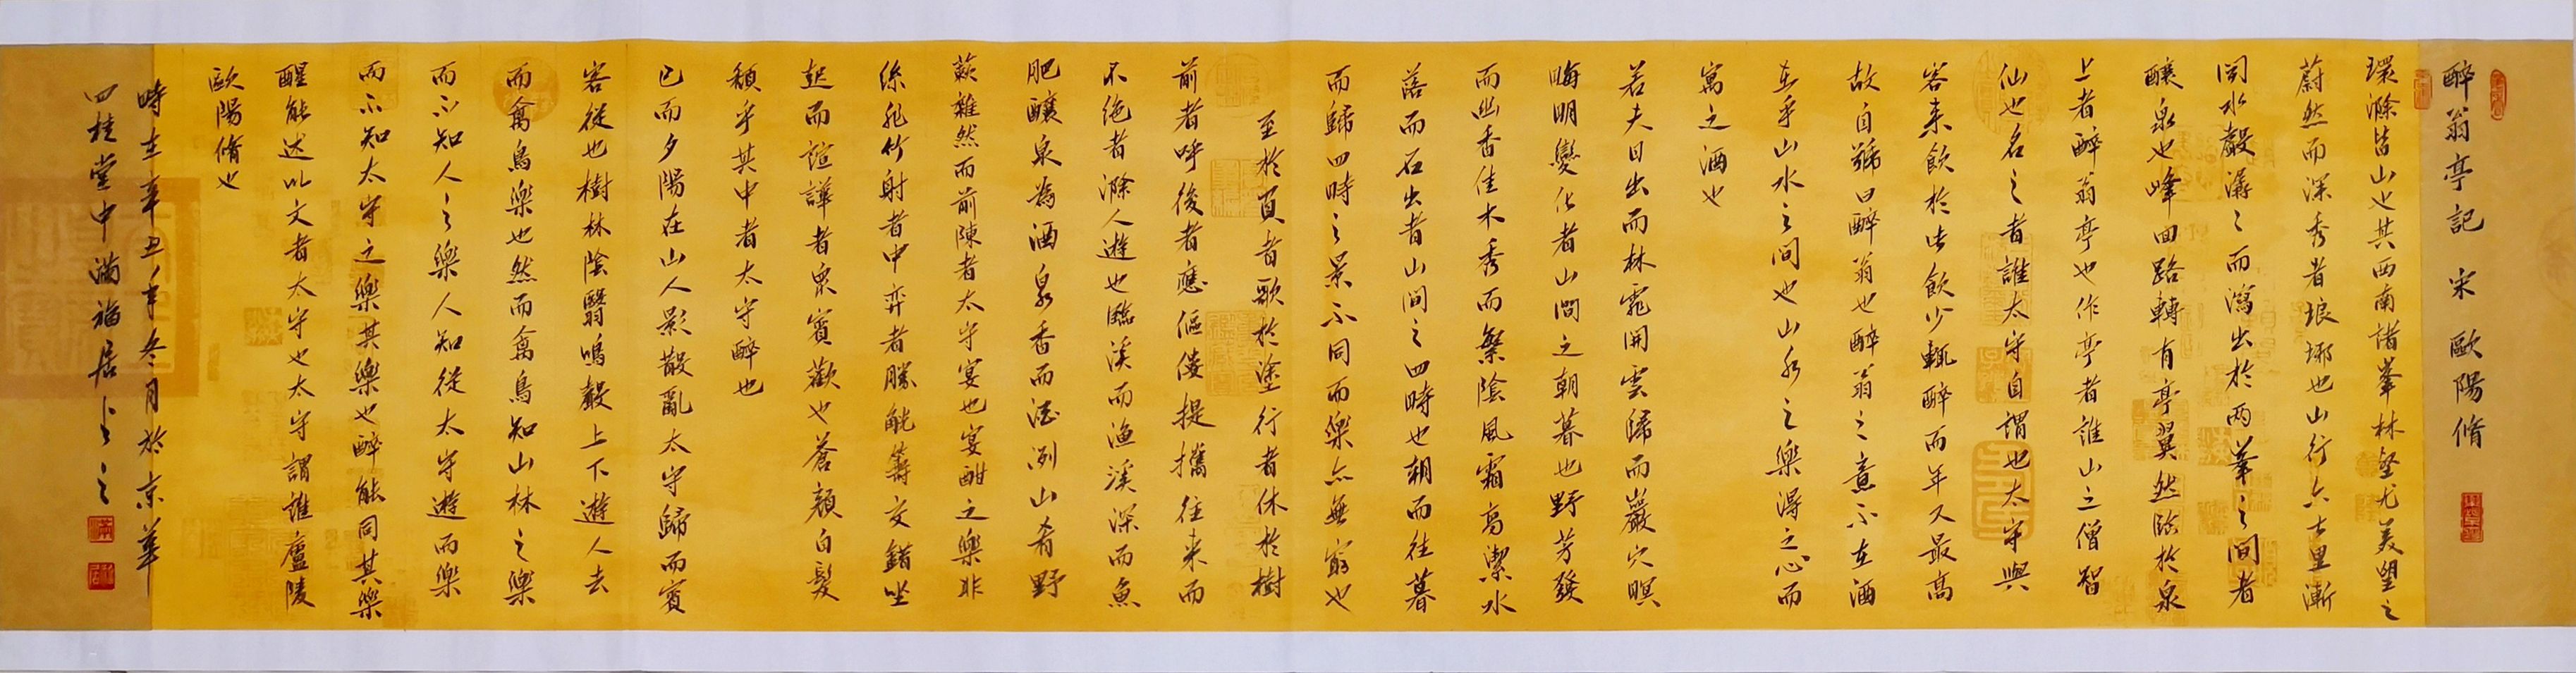 醉翁亭記 宋 歐陽脩
環滁皆山也其西南諸峯林壑尤美望之
蔚然而深秀者琅琊也山行六七里漸
聞水聲潺之而瀉出於兩峯之間者
釀泉也峰回路轉有亭翼然臨於泉
上者醉翁亭也作亭者誰山之僧智
仙也名之者誰太守自謂也太守與
客来飲於此飲少輒醉而年又最高
故自號曰醉翁也醉翁之意不在酒
在乎山水之間也山水之樂得之心而
寓之酒也
若夫日出而林霏開雲歸而巖穴暝
晦明變化者山間之朝暮也野芳發
而幽香佳木秀而繁陰風霜高潔水
落而石出者山間之四時也朝而往暮
而歸四時之景不同而樂亦無窮也
至於負者歌於塗行者休於樹
前者呼後者應傴僂提攜往来而
不绝者滁人遊也臨溪而渔溪深而魚
肥釀泉為酒泉香而酒洌山肴野
蔌雜然而前陳者太守宴也宴酣之樂非
絲非竹射者中弈者勝觥籌交錯坐
起而諠譁者衆賓歡也蒼顏白髮
頹乎其中者太守醉也
已而夕陽在山人影散亂太守歸而賓
客從也樹林陰翳鳴聲上下遊人去
而禽鳥樂也然而禽鳥知山林之樂
而不知人之樂人知從太守遊而樂
而不知太守之樂其樂也醉能同其樂
醒能述以文者太守也太守謂誰廬陵
歐陽脩也
時在辛丑年冬月於京華
四桂堂中满福居士之